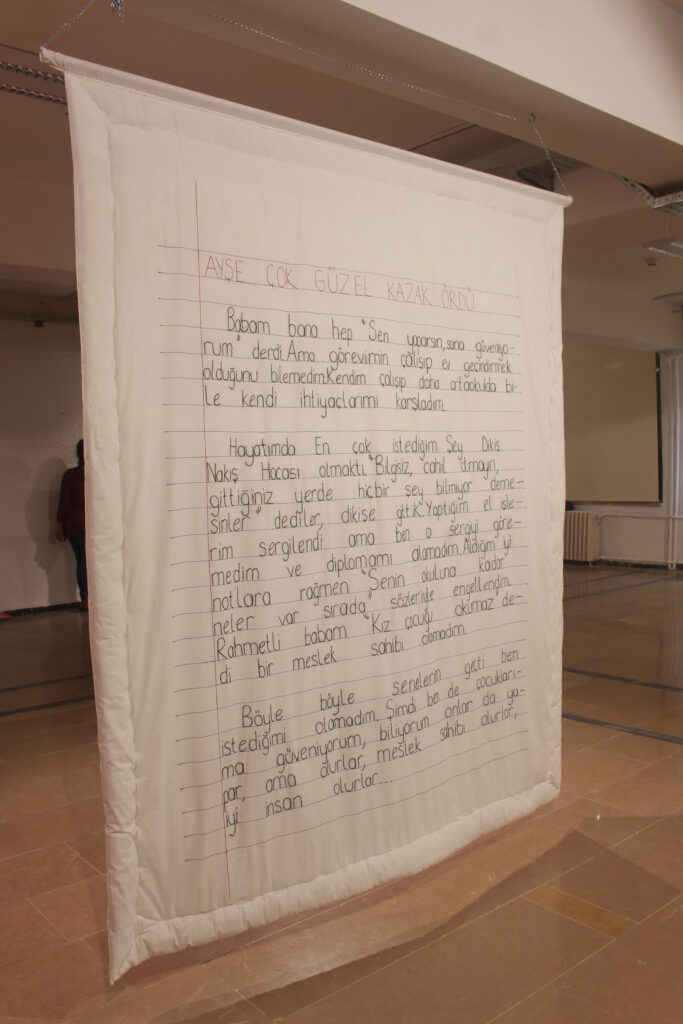 AYŞE ÇOK GÜZEL KAZAK ÖRDÜ
Babam bana hep "Sen yaparsın, sana güveniyo-
rum" derdi. Ama görevimin çalışıp ev geçindirmek
olduğunu bilemedim. Kendim çalışıp daha ortaokulda bi-
le kendi ihtiyaçlarımı karşıladım.
Hayatımda En çok istediğim Şey Dikiş
Nakış Hocası olmaktı. "Bilgisiz, cahil olmayın,
gittiğiniz yerde hiçbir şey bilmiyor deme-
sinler" dediler, dikişe gittik. Yaptığım el işle-
rim sergilendi ama ben o sergiyi göre-
medim ve diplomamı alamadım. Aldığım iyi
notlara rağmen "Senin okuluna kadar
neler var sırada" sözleriyle engellendim.
Rahmetli babam "Kız çocuğu okimaz" de-
di bir meslek sahibi olamadım.
Böyle böyle senelerim geçti ben
istediğimi olamadım. Şimdi ben de çocukları-
ma güveniyorum, biliyorum onlar da ya-
par, ama olurlar, meslek sahibi olurlar,
iyi insan olurlar...